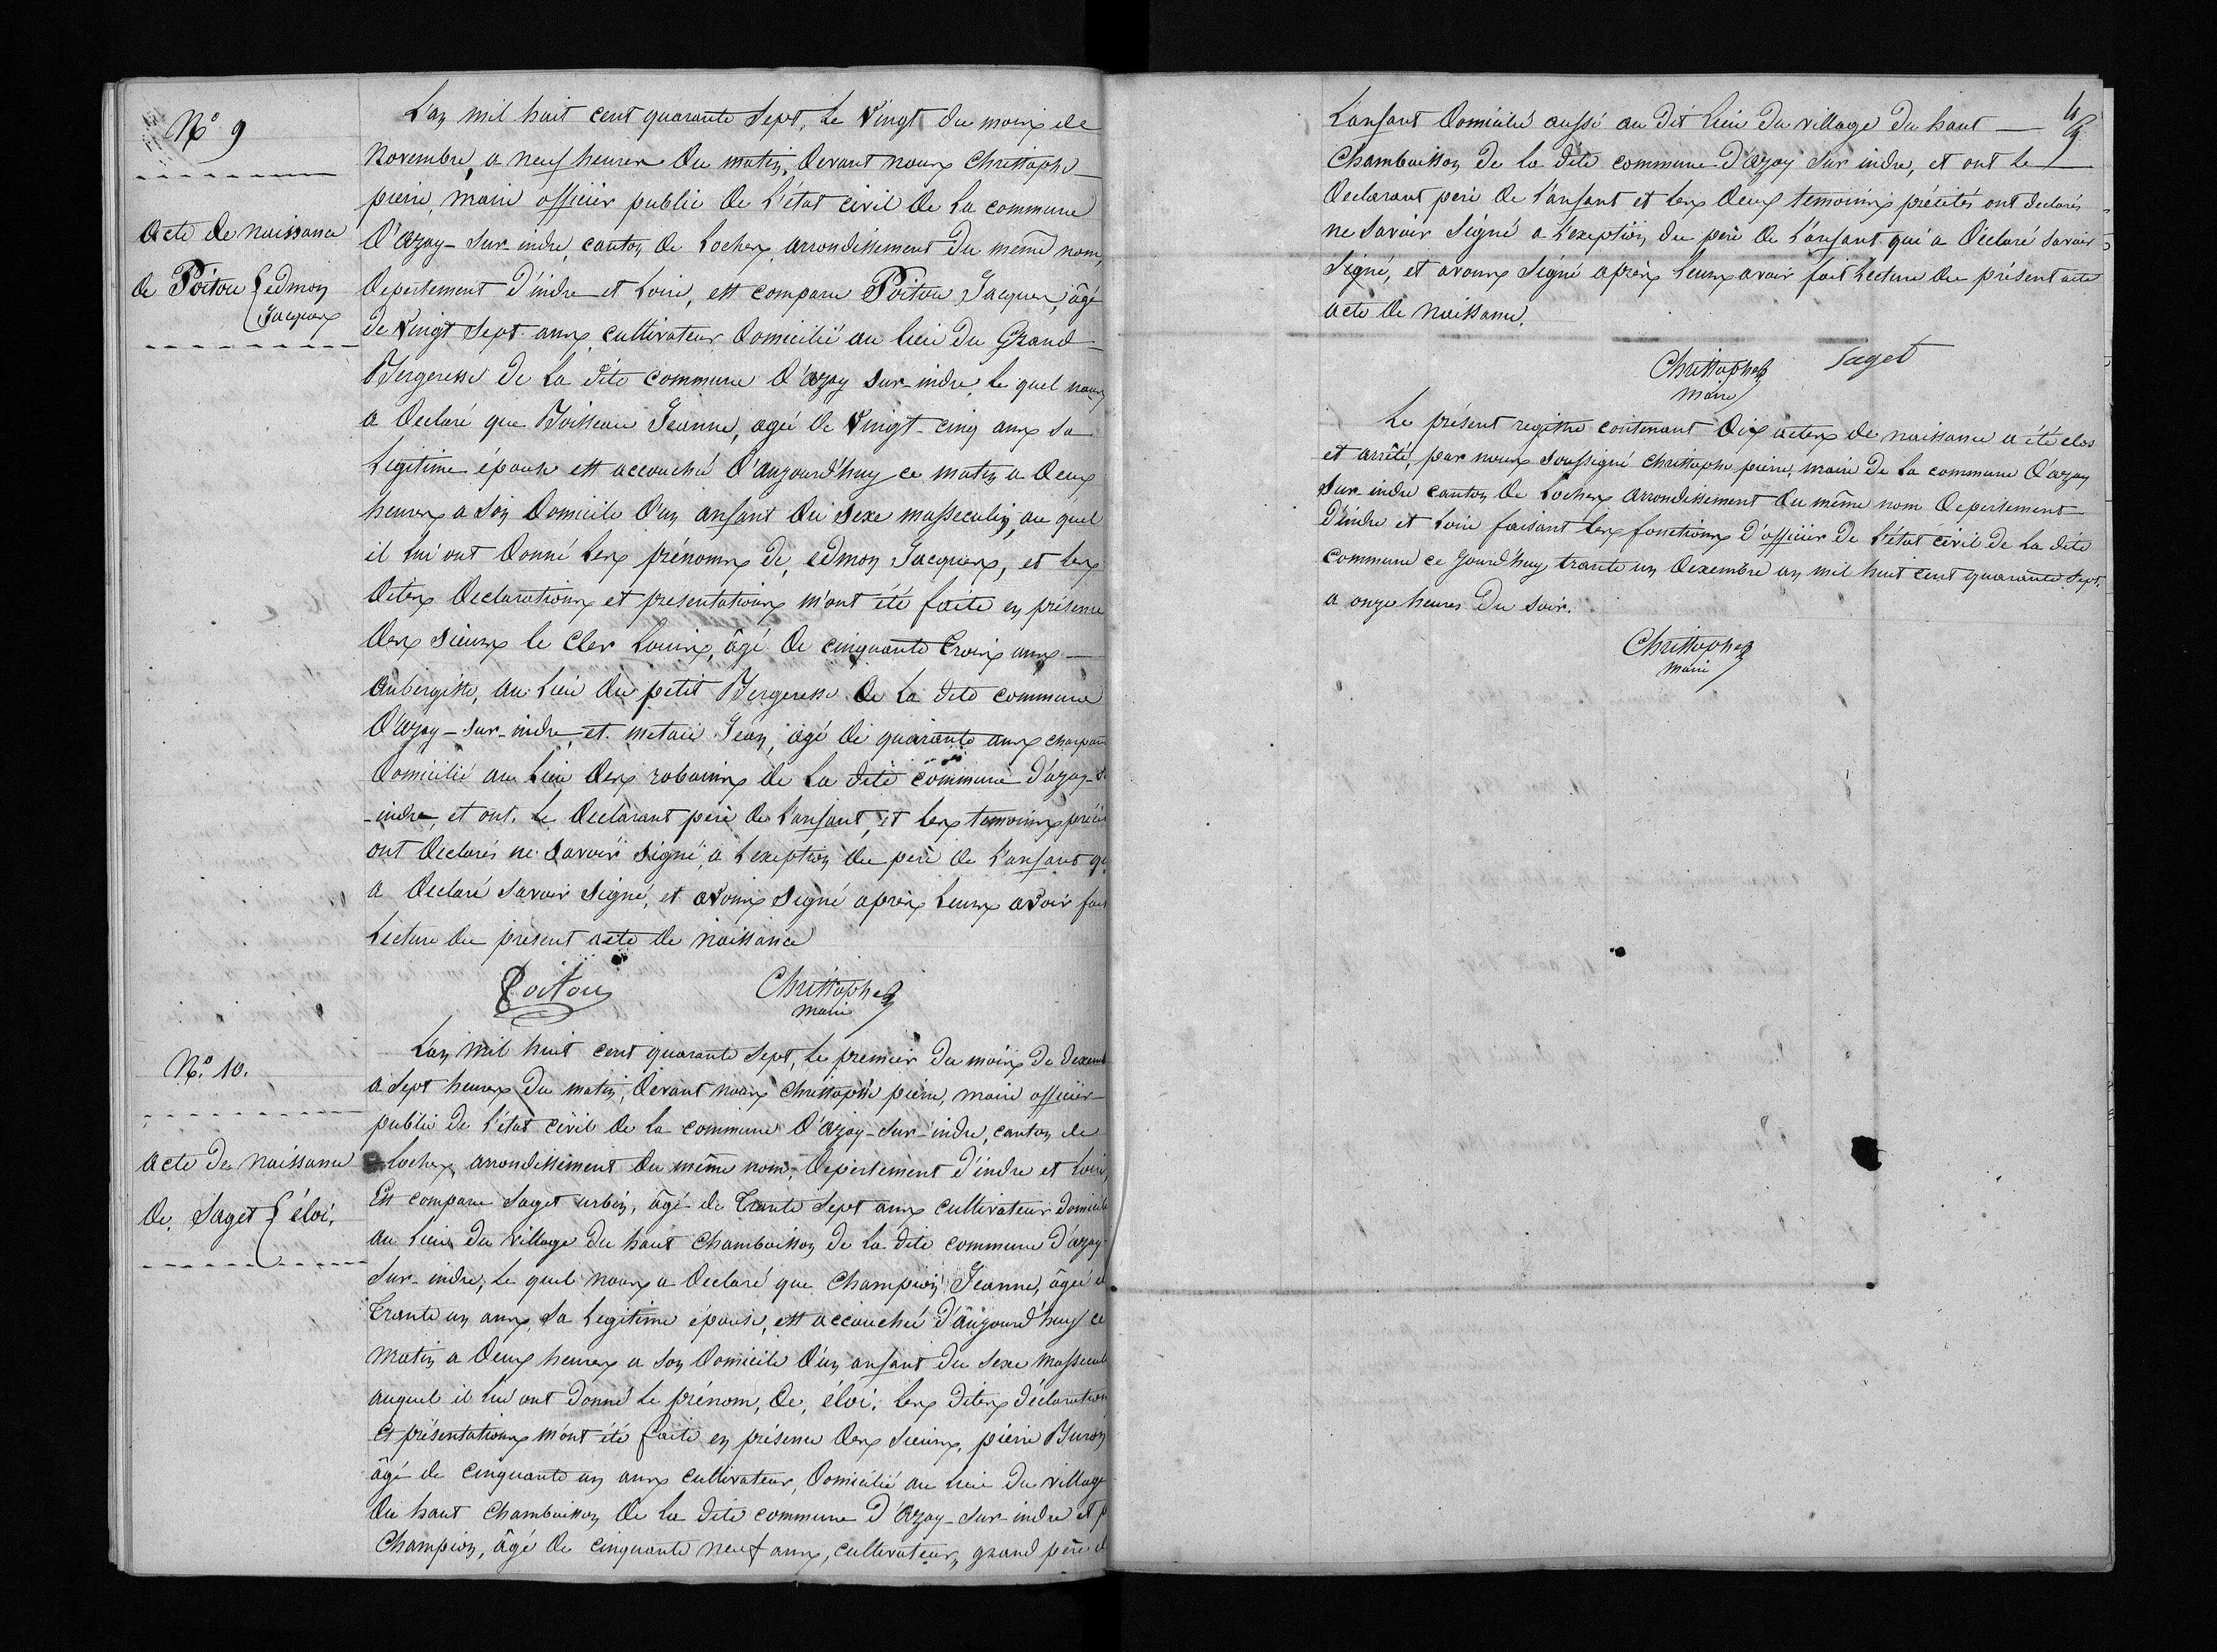 N.º 9
acte de naissance
de Poitou { edmon
Jacques
L'an mil huit cent quarante Sept, Le Vingt du moix de
Novembre, a neuf heures Du matin, Devant noux Christophe
pierre, maire officier public De L'état civil De La commune
D'azay-sur-indre, canton De Loches, arrondissement Du même nom,
Depertement D'indre et Loire, est comparu Poitou Jacques, âgé
De Vingt Sept anx, cultivateur Domicilié au lieu Du Grand
Bergeresse De La dite commune D'azay sur-indre, Le quel noux
a Declaré que Boisseau Jeanne, agée De Vingt-cinq anx Sa
Legitime épouse est accouchée D'aujourd'huy ce matin a Deux
heures a Son Domicile D'un anfant Du Sexe masseculin, au quel
il Lui ont Donné Lex prénomx De, edmon Jacquex, et lex
Ditex Declarationx et presentationx m'ont été faite en présence
Dex Sieurx le Cler Louix, âgé De cinquante Troix anx
Aubergiste, au Lieu Du petit Bergeresse De La dite commune
D'azay-sur-indre et metaié Jean, agé De quarante anx
Domicilié au Lieu Dex robainx De La dite commune D'azay-s
-indre, et ont. Le Déclarant père De L'anfant, et Lex temoinx
ont Déclarés ne Savoir Signé, a L'exeption du père De L'anfant
a Declaré Savoir Signé, et avonx Signé aprèx Leurx avoir fait
Lecture du present acte De naissance
Poitou Christophe
maire
N.º 10.
acte de Naissance
De. Saget { éloi.
L'an mil huit cent quarante Sept, Le premier Du moix De
a Sept heurex Du matin, Devant noux Christophe pierre, maire officier
public De L'état civil De La commune D'azay-sur-indre, canton De
Loches, arrondissement Du même nom, Depertement D'indre et Loire,
Est comparu Saget urbin, âgé De Trante Sept anx cultivateur
au Lieu Du village Du haut Chambaisson De La dite commune D'azay-
sur-indre, Le quel noux a Declaré que Champion Jeanne, âgée
Trante un anx, Sa Legitime épouse, est accouchée D'aujourd'huy ce
Matin a Deux heurex a Son Domicile D'un anfant Du Sexe
auquel il Lui ont Donné Le prénom, De, éloi. Lex Ditex Déclaration
Et présentationx m'ont été faite en présence Dex Sieurx, pierre Buron
âgé de Cinquante un anx cultivateur, Domicilié au lieu Du village
Du haut Chambaisson De La dite commune D'Azay-sur-indre et
Champion, âgé De Cinquante neuf anx, cultivateur, grand père
L'anfant Domicilié aussi au Dit Lieu Du village Du haut
Chambaisson De La dite commune D'azay Sur indre, et ont Le
Declarant père De L'anfant et Lex Deux temoinx précités ont declarés
ne Savoir Signé a L'exeption Du père De L'anfant qui a Déclaré Savoir
Signé, et avonx Signé aprèx Leurx avoir fait Lecture Du présent acte
acte De Naissance.
Christophe Saget
Maire
Le présent registre contenant Dix actex de naissance a été clos
et arrêté, par noux Soussigné Christophe pierre, maire De La commune D'azay
Sur-indre canton De Loches arrondissement Du même nom Depertement
D'indre et Loire faisant Lex fonctionx D'officier De L'état civil De La dite
Commune ce Jourd'huy trante un Dexembre an mil huit cent quarante Sept.
a onze heures Du Soir.
Christophe
Maire